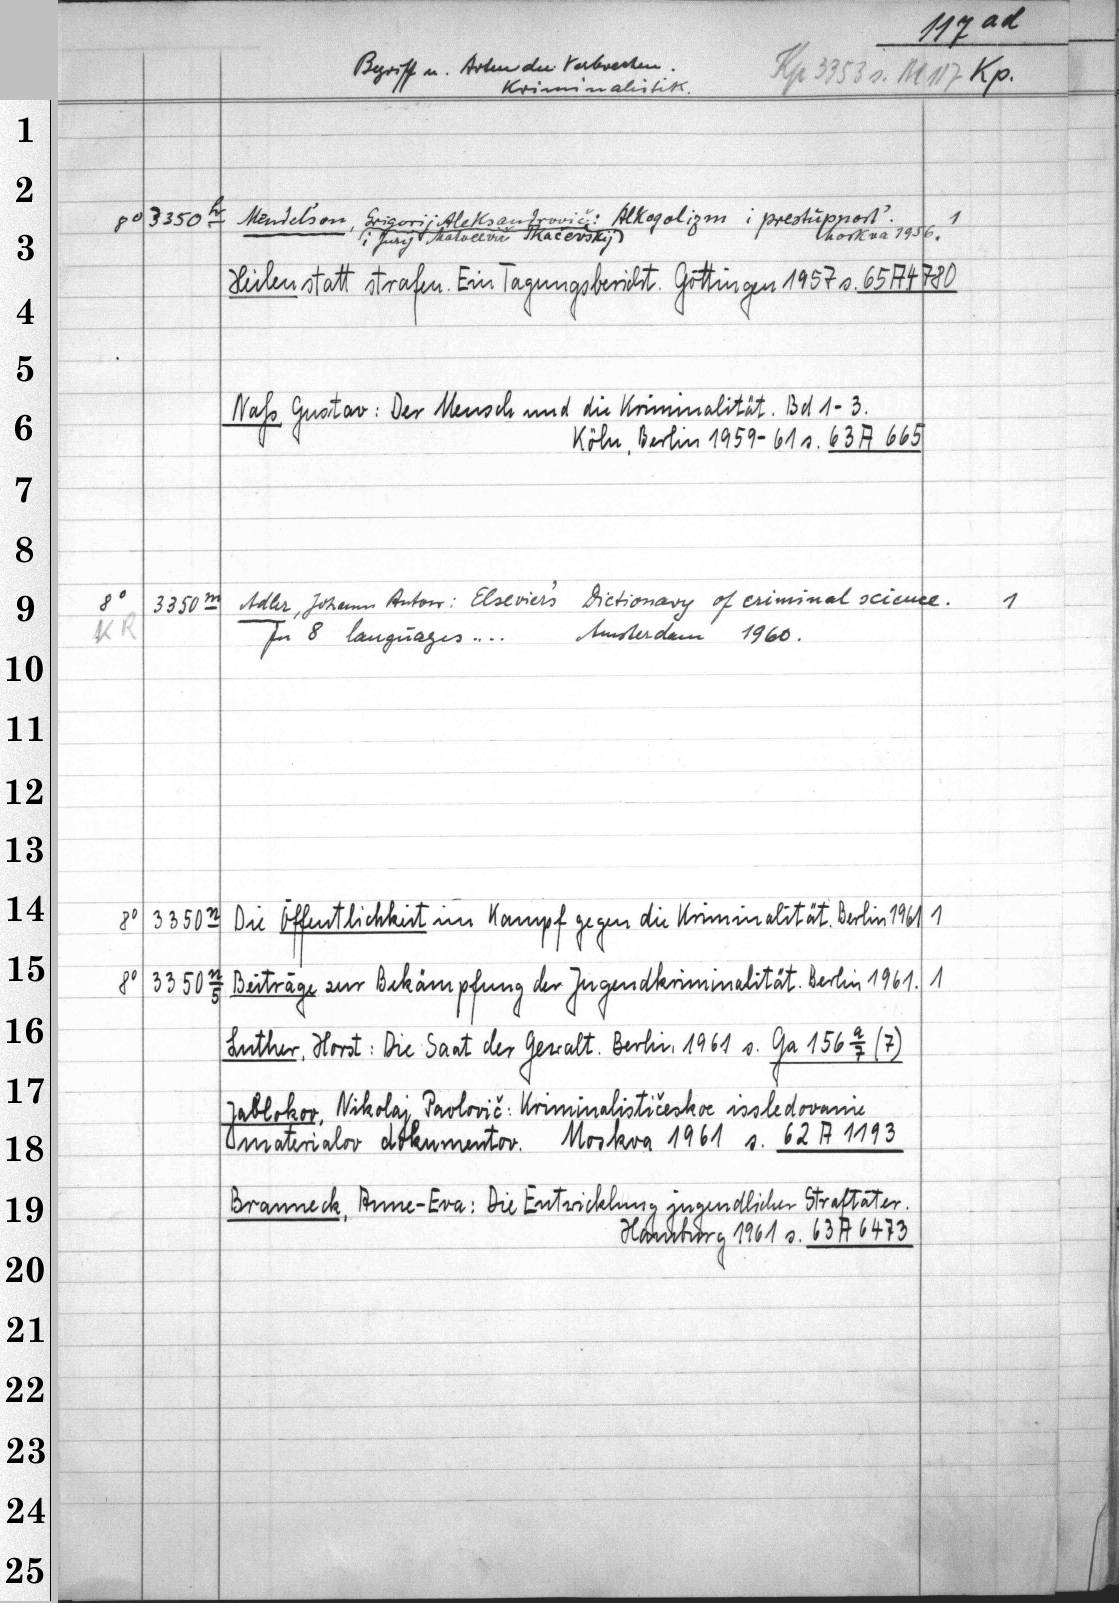 117 ad
Begriff u. Arten der Verbrechen.
Kp 3353 s. M 117 Kp.
Kriminalistik.
1
2
8° 3350 h Mendel'son, Grigorij Aleksandrovič: Alkogolizm i prestupnost'. 1
i Jurij Matveevič Tkačevskij) Moskva 1956.
3
Heilen statt strafen. Ein Tagungsbericht. Göttingen 1957 s. 65 A 4780
4
5
Naß, Gustav: Der Mensch und die Kriminalität. Bd 1-3.
6
Köln, Berlin 1959-61 s. 63 A 665
7
8
9
8° 3350 m Adler, Johann Anton: Elsevier's Dictionary of criminal science. 1
KR In 8 languages .... Amsterdam 1960.
10
11
12
13
14
8° 3350 n Die Öffentlichkeit im Kampf gegen die Kriminalität. Berlin 1961 1
15
8° 3350 n/5 Beiträge zur Bekämpfung der Jugendkriminalität. Berlin 1961. 1
16
Luther, Horst: Die Saat der Gewalt. Berlin 1961 s. Ga 156 a/7 (7)
17
Jablokov, Nikolaj Pavlovič: Kriminalističeskoe issledovanie
18
materialov dokumentov. Moskva 1961 s. 62 A 1193
19
Brauneck, Anne-Eva: Die Entwicklung jugendlicher Straftäter.
Hamburg 1961 s. 63 A 6473
20
21
22
23
24
25